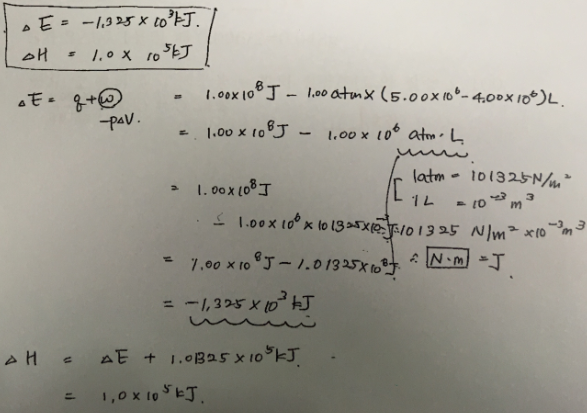 △E = -1,325 × 10³ kJ.
△H = 1.0 × 10⁵ kJ
△E = q+w = 1.00×10⁸ J - 1.00 atm × (5.00×10⁶ - 4.00×10⁶) L.
-p△V.
= 1.00×10⁸ J - 1.00 × 10⁶ atm·L
1atm = 101325 N/m²
1L = 10⁻³ m³
= 1.00 × 10⁸ J
- 1.00 × 10⁶ × 101325×10⁻³ J
101325 N/m² × 10⁻³ m³
= 1.00 × 10⁸ J - 1.01325×10⁸ J
∴ N·m = J.
= -1,325 × 10³ kJ
△H = △E + 1.01325 × 10⁵ kJ.
= 1.0 × 10⁵ kJ.